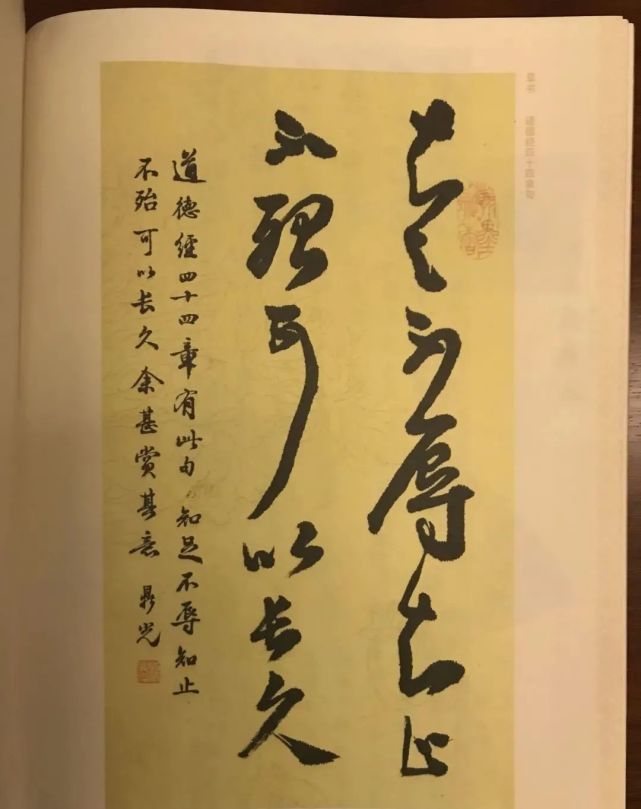 草书 道德经四十四章句
知足不辱知止
不殆可以长久
道德经四十四章有此句知足不辱知止
不殆可以长久余甚赏其意 晨光